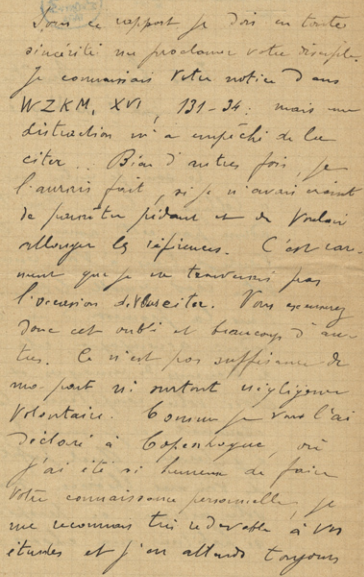 Sous ce rapport je dois en toute
sincérité me proclamer votre disciple.
Je connaissais votre notice dans
WZKM, XVI, 131-34. mais une
distraction m'a empêché de la
citer. Bien d'autres fois, je
l'aurais fait, si je n'avais craint
de paraître pédant et de vouloir
allonger les références. C'est
que je ne trouverais pas
l'occasion de vous citer. Vous excuserez
donc cet oubli et beaucoup d'au-
tres. Ce n'est pas suffisance de
ma part ni surtout négligence
volontaire. Comme je vous l'ai
déclaré à Copenhague, où
j'ai été si heureux de faire
votre connaissance personnelle, je
me reconnais très redevable à vos
études et j'en attends toujours